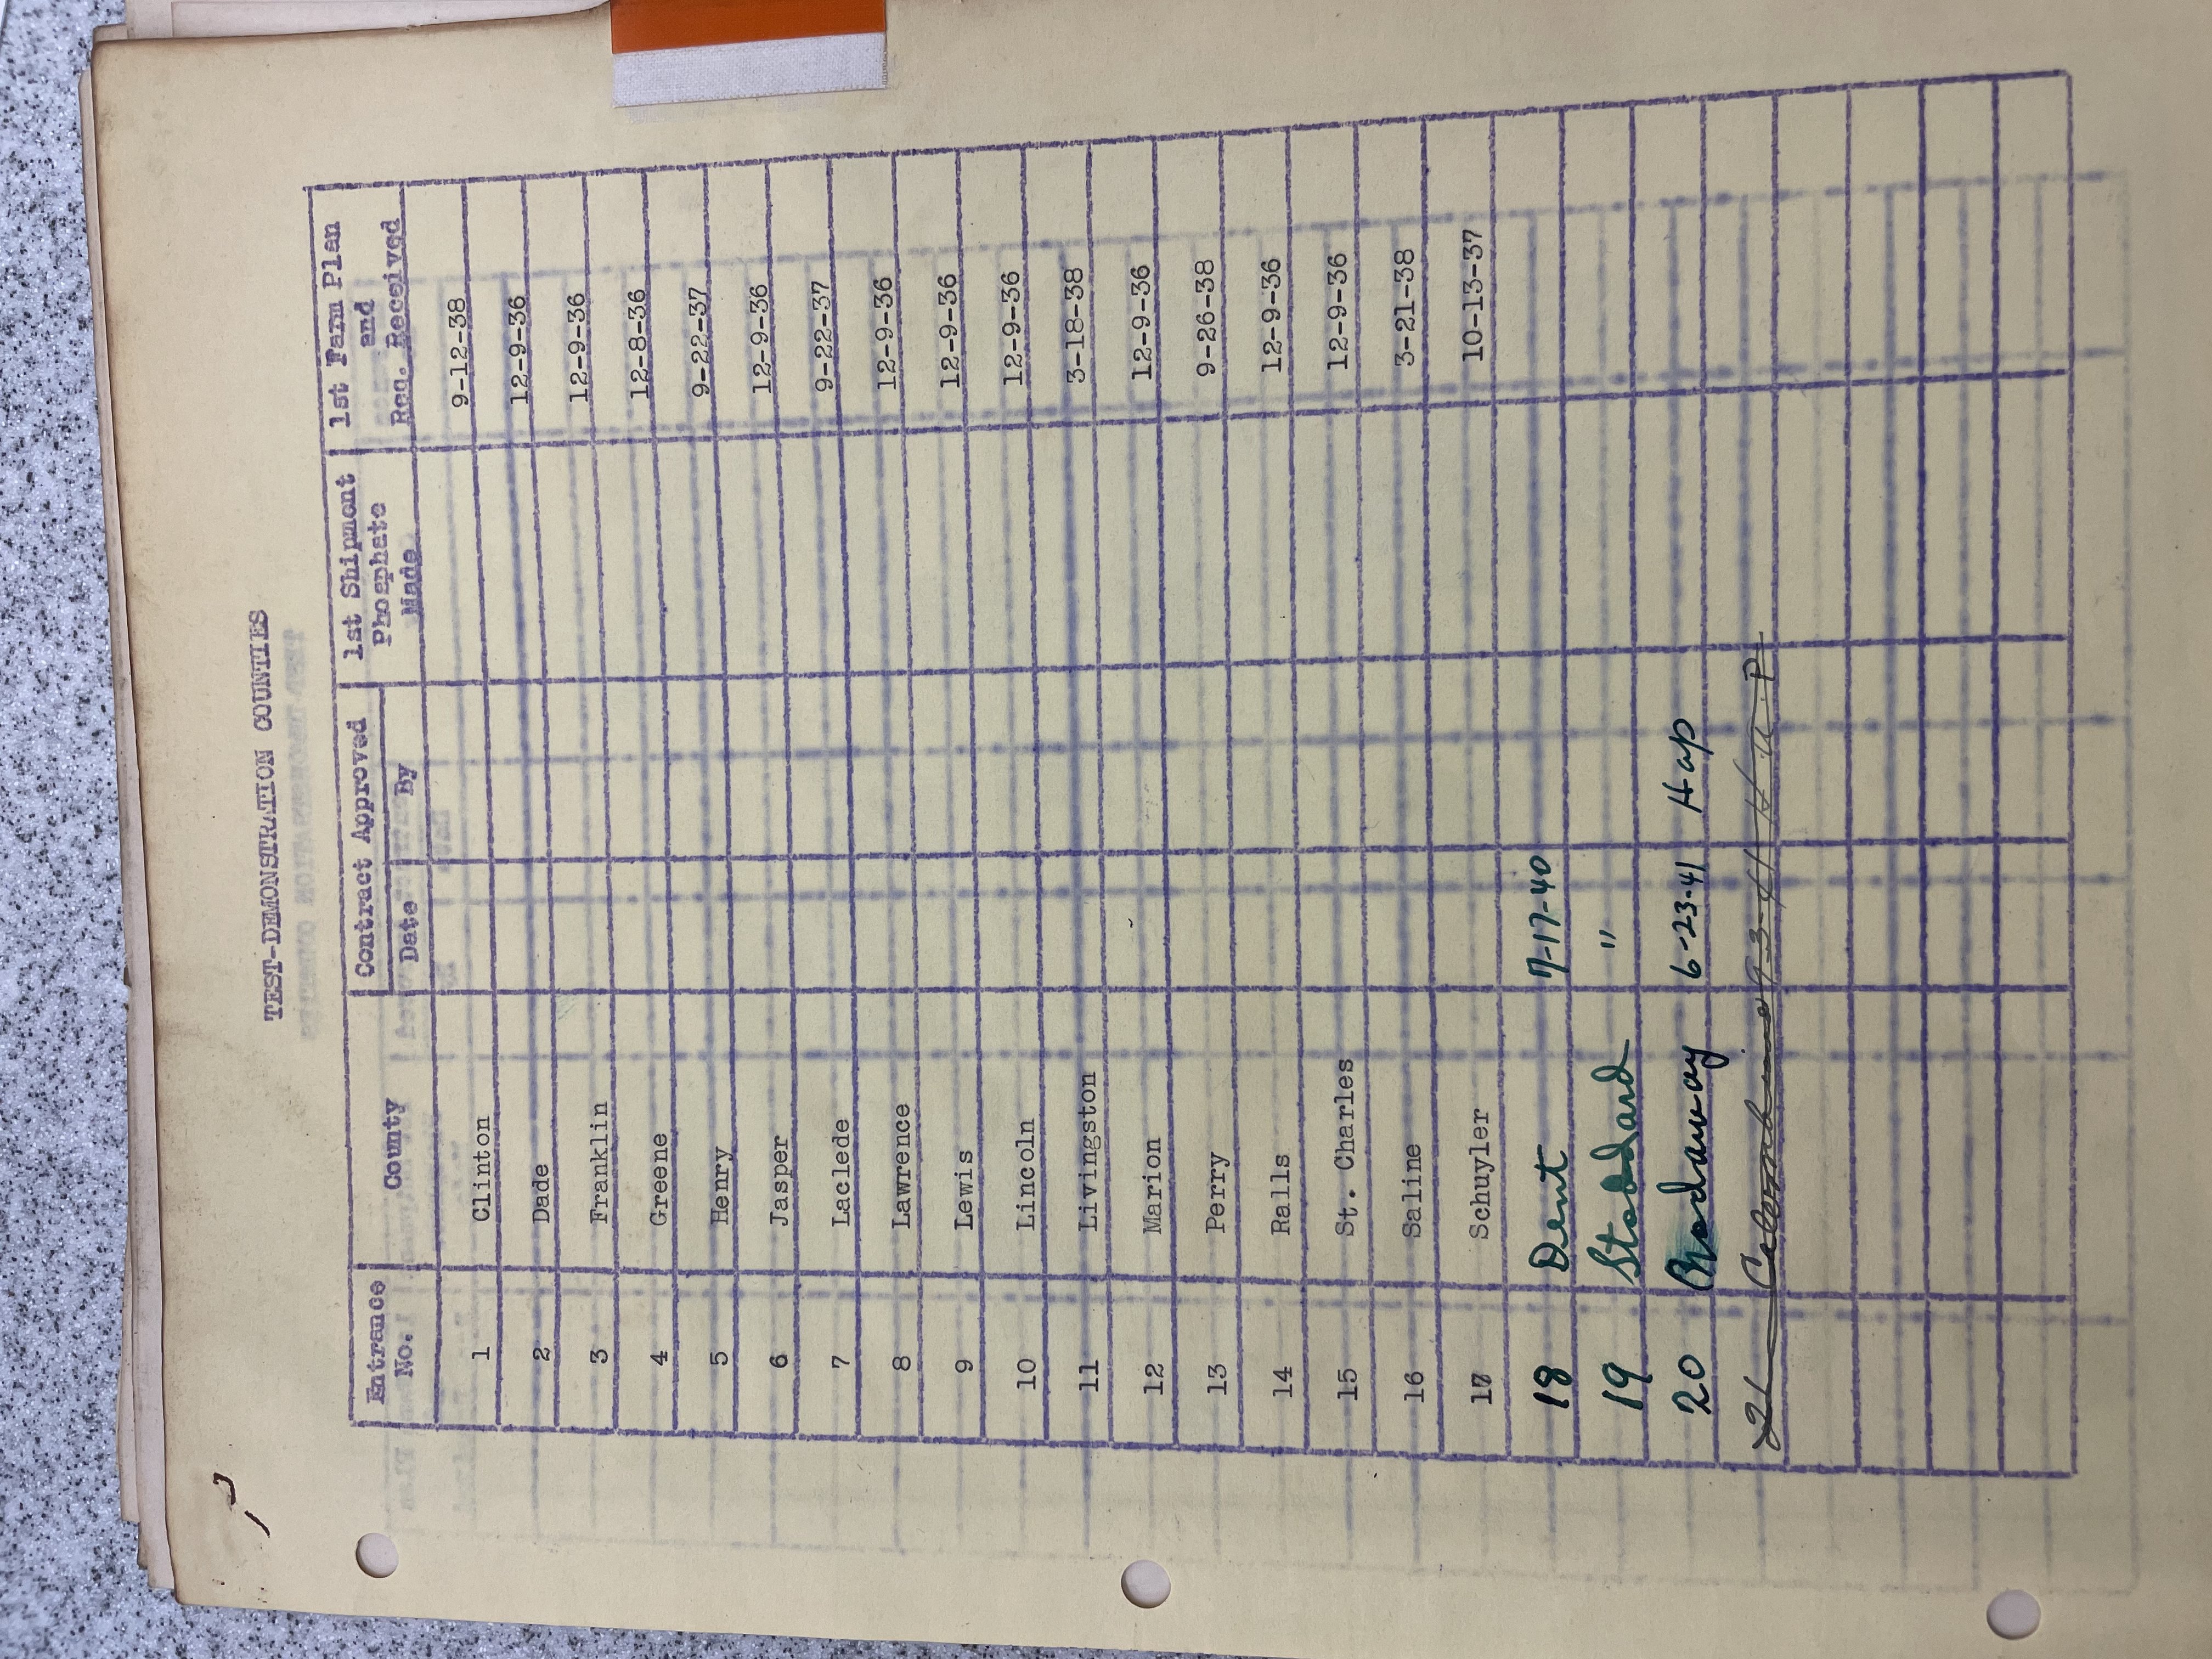 TEST-DEMONSTRATION COUNTIES
Entrance No. County Contract Approved Date By 1st Shipment Phosphate Made 1st Farm Plan and Req. Received
1 Clinton 9-12-38
2 Dade 12-9-36
3 Franklin 12-9-36
4 Greene 12-8-36
5 Henry 9-22-37
6 Jasper 12-9-36
7 Laclede 9-22-37
8 Lawrence 12-9-36
9 Lewis 12-9-36
10 Lincoln 12-9-36
11 Livingston 3-18-38
12 Marion 12-9-36
13 Perry 9-26-38
14 Ralls 12-9-36
15 St. Charles 12-9-36
16 Saline 3-21-38
17 Schuyler 10-13-37
18 Dent 7-17-40
19 Stoddard "
20 Nodaway 6-23-41 Hap
21